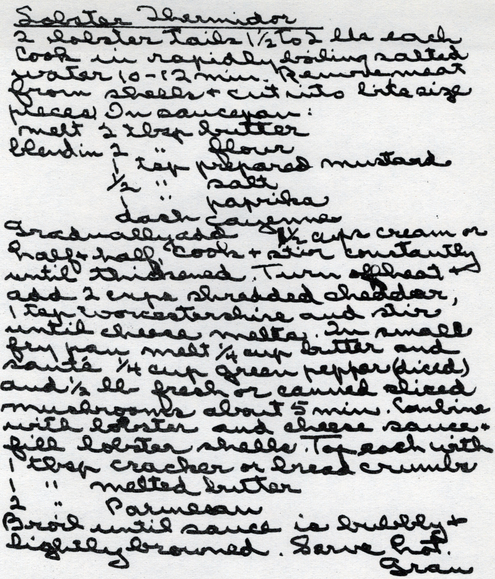 Lobster Thermidor
2 lobster tails 1 1/2 to 2 lbs each
Cook in rapidly boiling salted
water 10-12 min. Remove meat
from shells + cut into bite size
pieces. In saucepan:
melt 2 tbsp butter
blend in 2 " flour
1 tsp prepared mustard
1/2 " salt
1 " paprika
dash cayenne
Gradually add 1 1/2 cups cream or
half + half, Cook + stir constantly
until thickened. Turn off heat +
add 2 cups shredded cheddar,
1 tsp worcestershire and stir
until cheese melts. In small
fry pan melt 1/4 cup butter and
sauté 1/4 cup green pepper (diced)
and 1/2 lb fresh or canned sliced
mushrooms about 5 min. Combine
with lobster and cheese sauce +
fill lobster shells. Top each with
1 tbsp cracker or bread crumbs
1 " melted butter
2 " Parmesan
Broil until sauce is bubbly +
lightly browned. Serve hot.
Gram